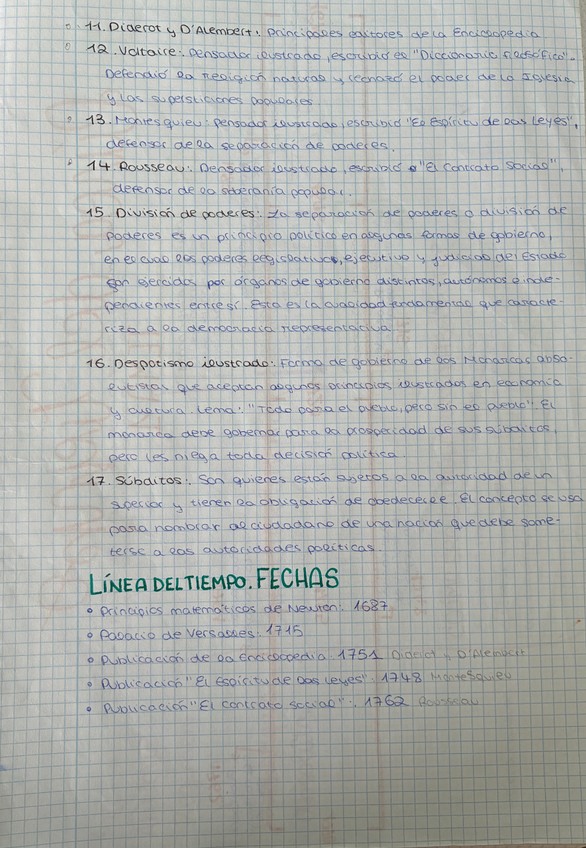 11. Diderot y D'Alembert: Principales editores de la Enciclopedia
12. Voltaire: Pensador ilustrado, escribió el "Diccionario filosófico".
Defendió la religión natural y rechazó el poder de la Iglesia
y las supersticiones populares.
13. Montesquieu: pensador ilustrado, escribió "El Espíritu de las Leyes",
defensor de la separación de poderes.
14. Rousseau: Pensador ilustrado, escribió "El Contrato Social",
defensor de la soberanía popular.
15. División de poderes: La separación de poderes o división de
poderes es un principio político en algunas formas de gobierno,
en el cual los poderes legislativo, ejecutivo y judicial del Estado
son ejercidos por órganos de gobierno distintos, autónomos e inde-
pendientes entre sí. Esta es la cualidad fundamental que caracte-
riza a la democracia representativa.
16. Despotismo ilustrado: Forma de gobierno de los Monarcas abso-
lutistas que aceptan algunos principios ilustrados en economía
y cultura. Lema: "Todo para el pueblo, pero sin el pueblo". El
monarca debe gobernar para la prosperidad de sus súbditos,
pero les niega toda decisión política.
17. Súbditos: Son quienes están sujetos a la autoridad de un
superior y tienen la obligación de obedecerle. El concepto se usa
para nombrar al ciudadano de una nación que debe some-
terse a las autoridades políticas.
LÍNEA DEL TIEMPO. FECHAS
• Principios matemáticos de Newton: 1687
• Palacio de Versalles: 1715
• Publicación de la Enciclopedia 1751 Diderot y D'Alembert
• Publicación "El Espíritu de las Leyes": 1748 Montesquieu
• Publicación "El contrato social": 1762 Rousseau